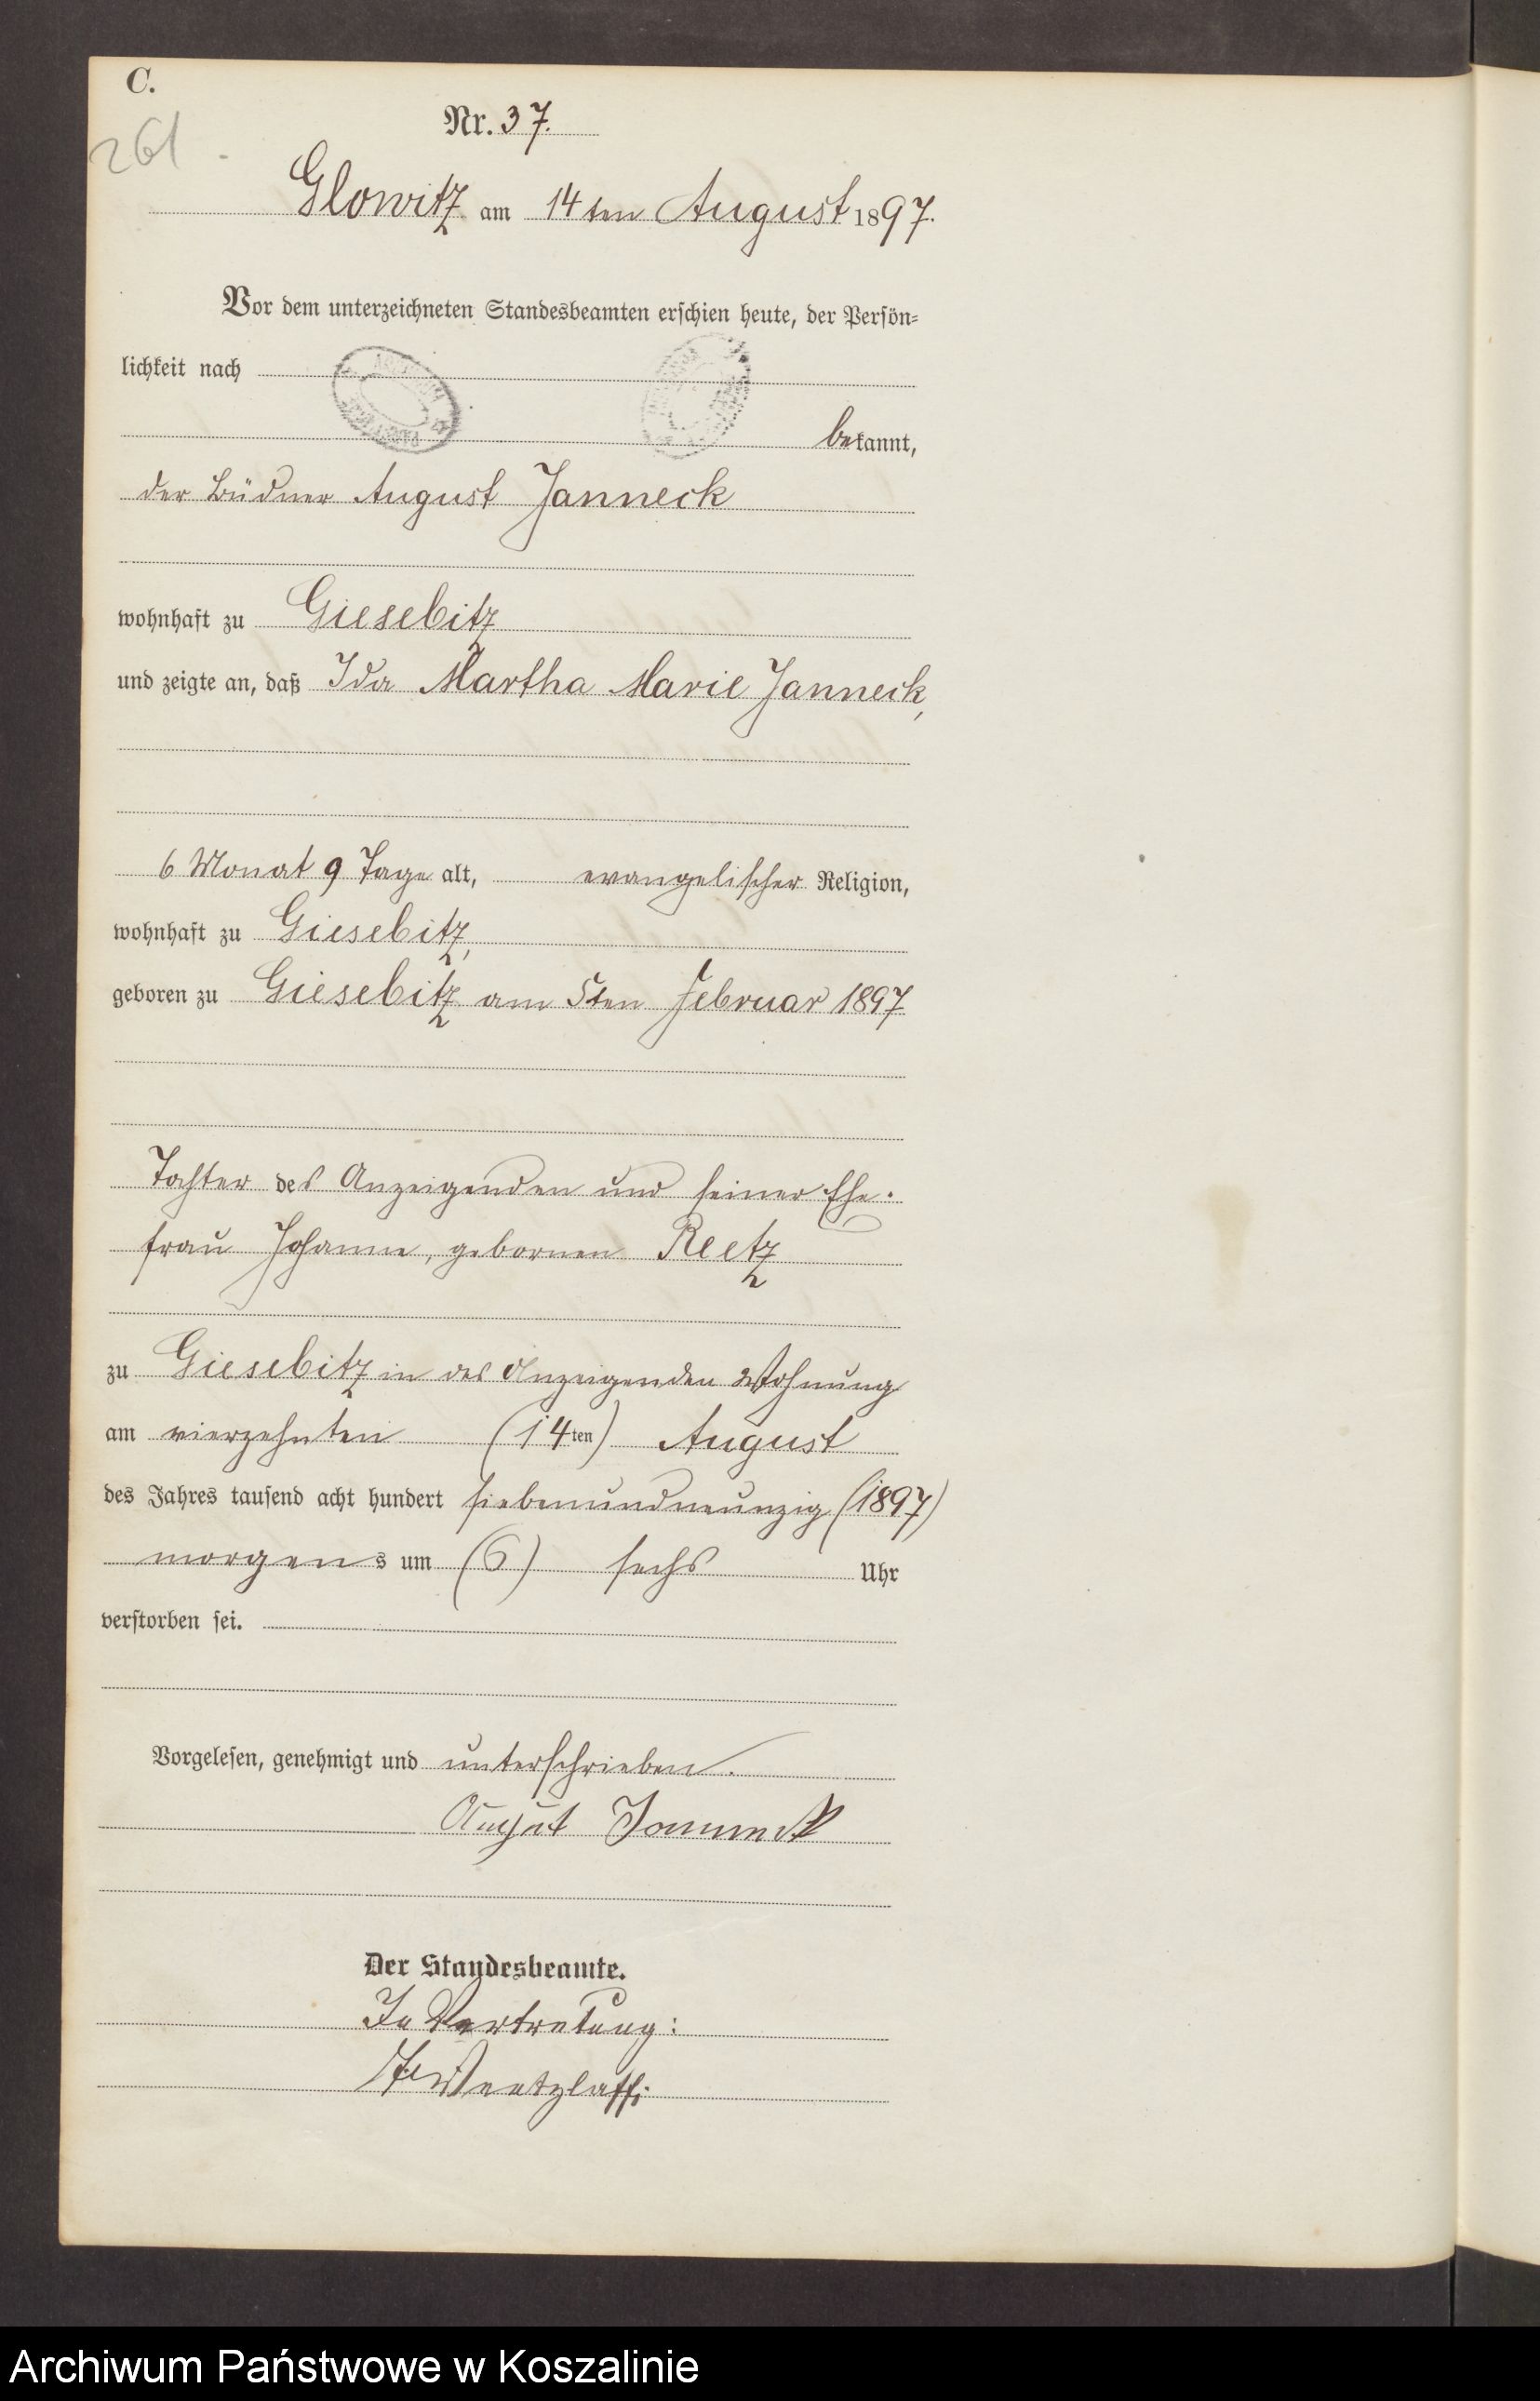 C.
261.
Nr. 37.
Glowitz am 14ten August 1897.
Vor dem unterzeichneten Standesbeamten erschien heute, der Persön=
lichkeit nach
bekannt,
der Büdner August Janneck
wohnhaft zu Giesebitz
und zeigte an, daß Ida Martha Marie Janneck,
6 Monat 9 Tage alt, evangelischer Religion,
wohnhaft zu Giesebitz,
geboren zu Giesebitz am 5ten Februar 1897
Tochter des Anzeigenden und seiner Ehe-
frau Johanne, gebornen Reetz
zu Giesebitz in des Anzeigenden Wohnung
am vierzehnten (14ten) August
des Jahres tausend acht hundert siebenundneunzig (1897)
morgens um (6) sechs Uhr
verstorben sei.
Vorgelesen, genehmigt und unterschrieben.
August Janneck
Der Standesbeamte.
In Vertretung:
Archiwum Państwowe w Koszalinie